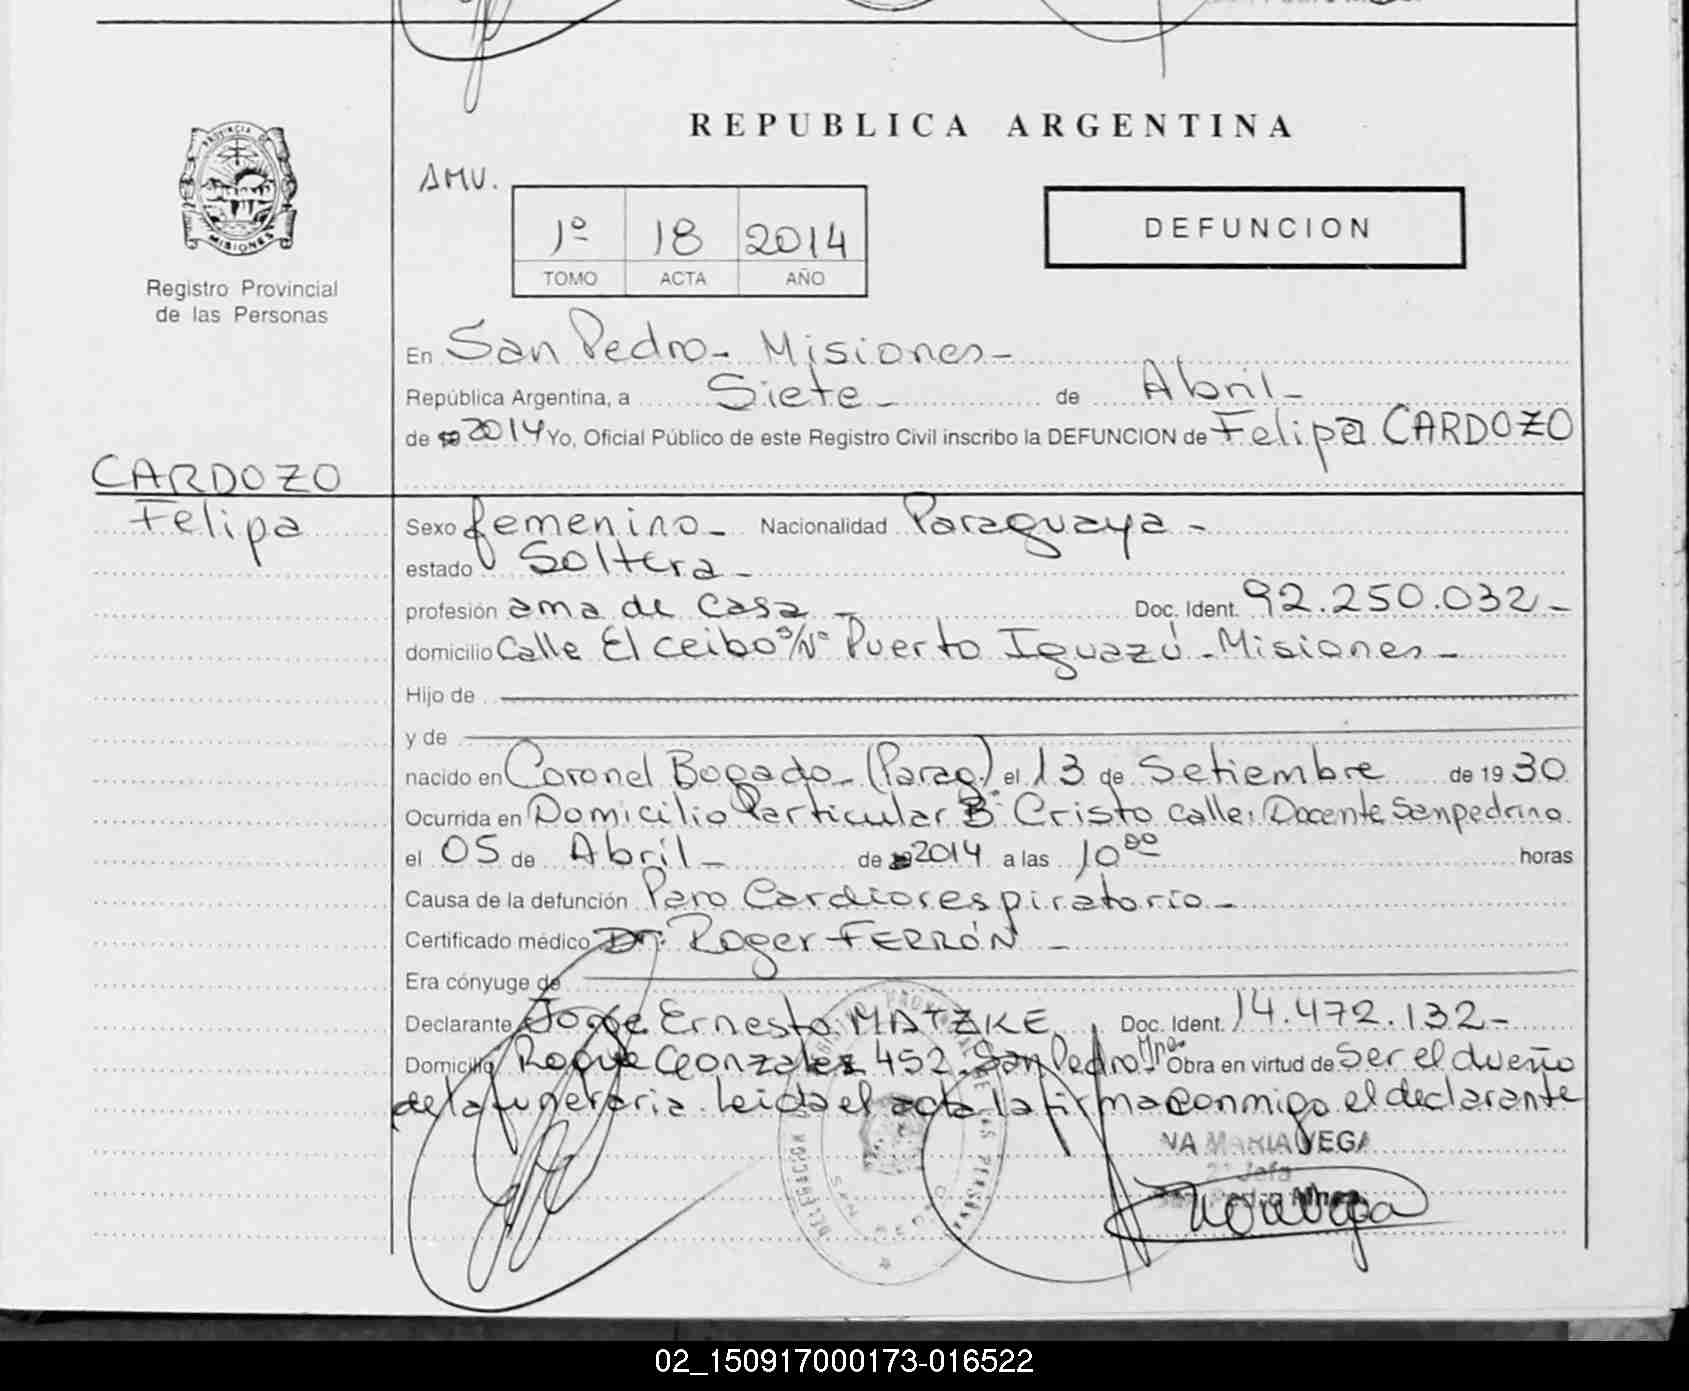 REPUBLICA ARGENTINA
PROVINCIA DE
MISIONES
Registro Provincial
de las Personas
AMV.
1º 18 2014
TOMO ACTA AÑO
DEFUNCION
En San Pedro - Misiones -
República Argentina, a Siete - de Abril -
de 2014 Yo, Oficial Público de este Registro Civil inscribo la DEFUNCION de Felipa CARDOZO
CARDOZO
Felipa
Sexo femenino - Nacionalidad Paraguaya -
estado Soltera -
profesión ama de casa - Doc. Ident. 92.250.032 -
domicilio Calle El Ceibo S/Nº Puerto Iguazú - Misiones -
Hijo de
y de
nacido en Coronel Bogado - (Parag.) el 13 de Setiembre de 19 30
Ocurrida en Domicilio Particular Bº Cristo calle: Docente Sanpedrino.
el 05 de Abril - de 2014 a las 10 00 horas
Causa de la defunción Paro Cardiorespiratorio -
Certificado médico Dr. Roger FERRÓN -
Era cónyuge de
Declarante Jorge Ernesto MATZKE Doc. Ident. 14.472.132 -
Domicilio Roque Gonzalez 452 - San Pedro - Mnes. Obra en virtud de ser el dueño
de la funeraria. Leida el acta la firma conmigo el declarante
NA MARIA VEGA
Jefa
02_150917000173-016522